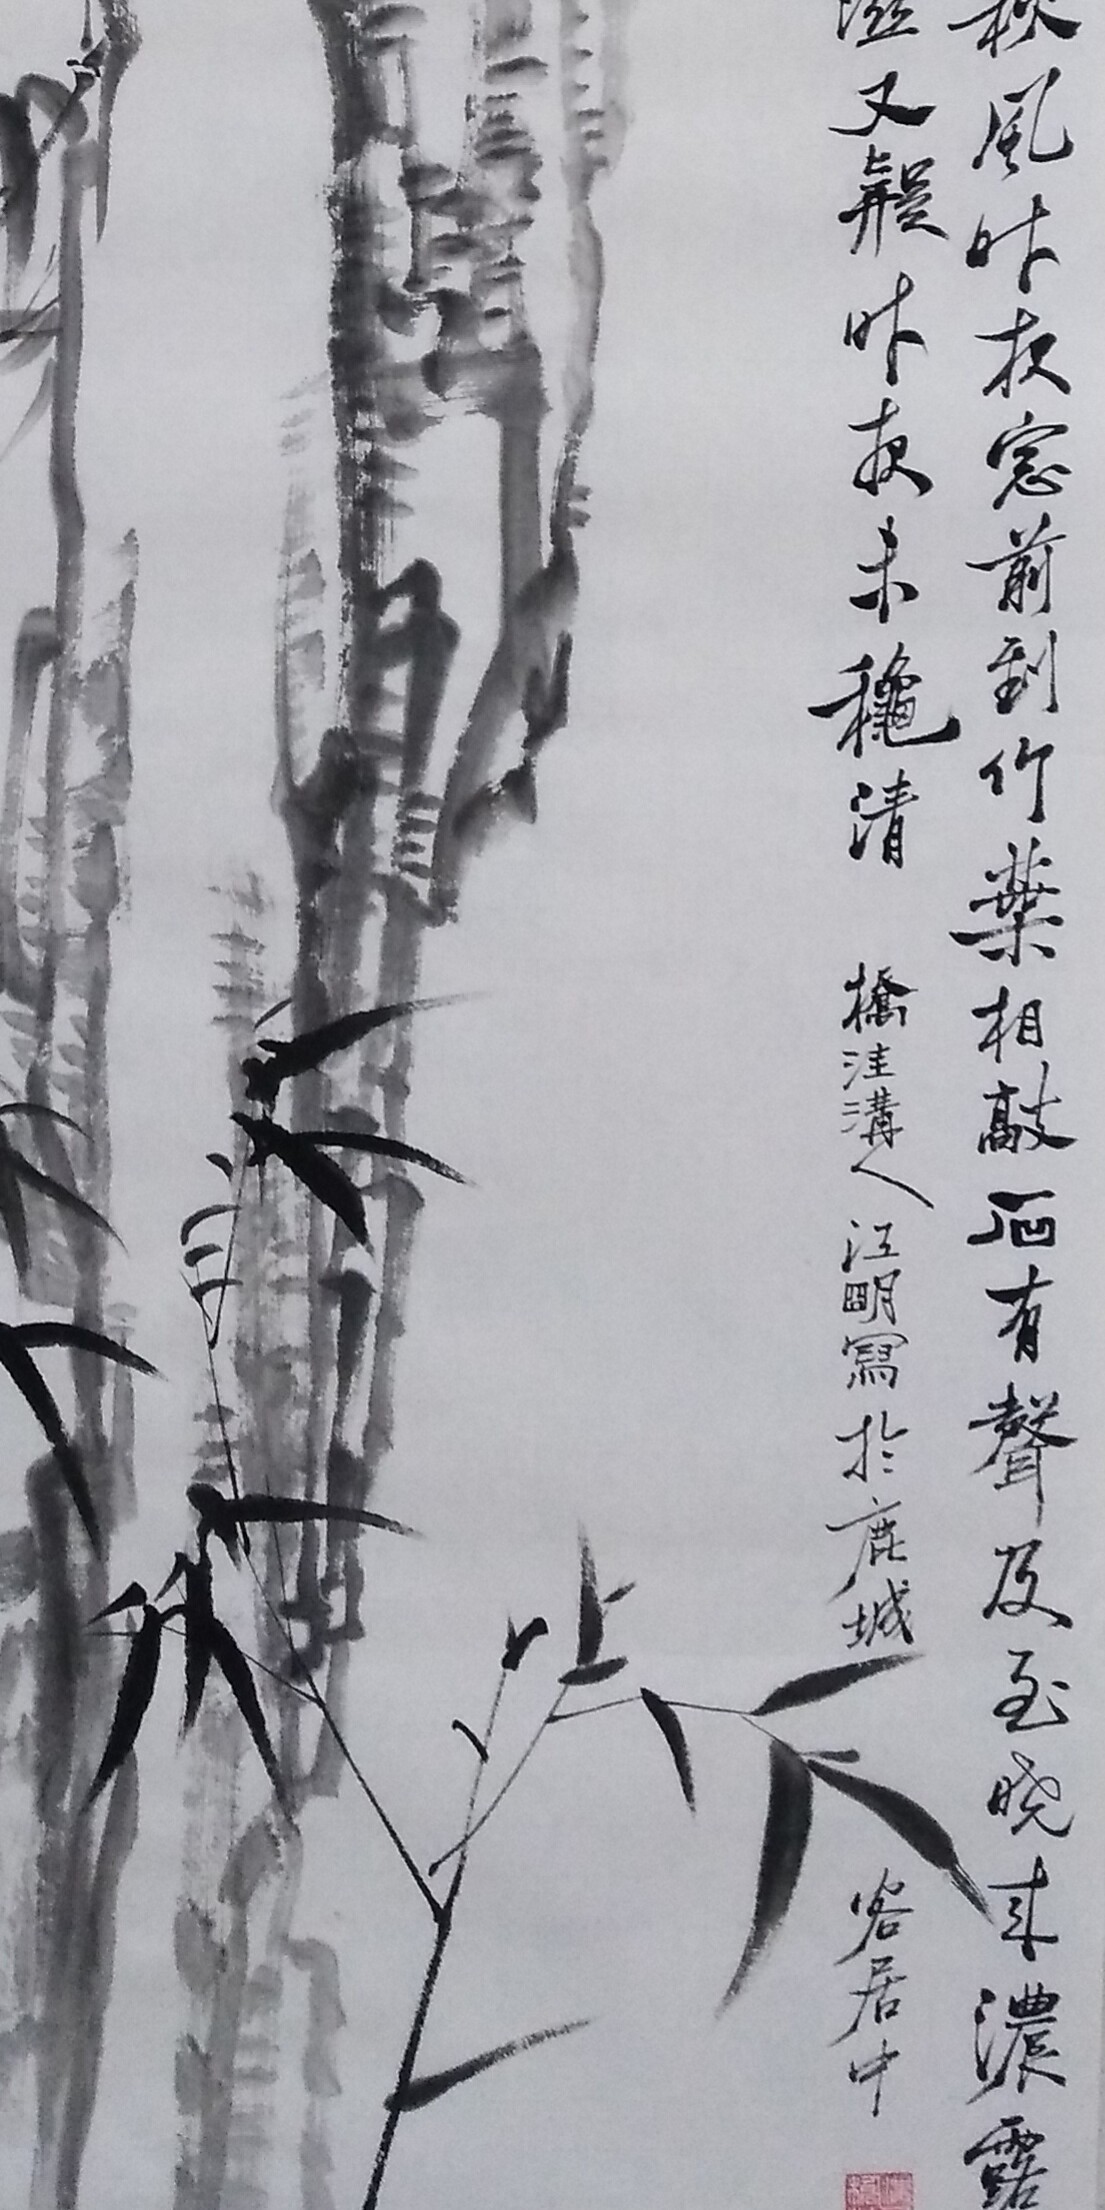 秋風昨夜窓前到竹葉相敲石有聲及至曉來濃露
溼又疑昨夜未穐清 橋洼溝人江明寫於鹿城 客居中